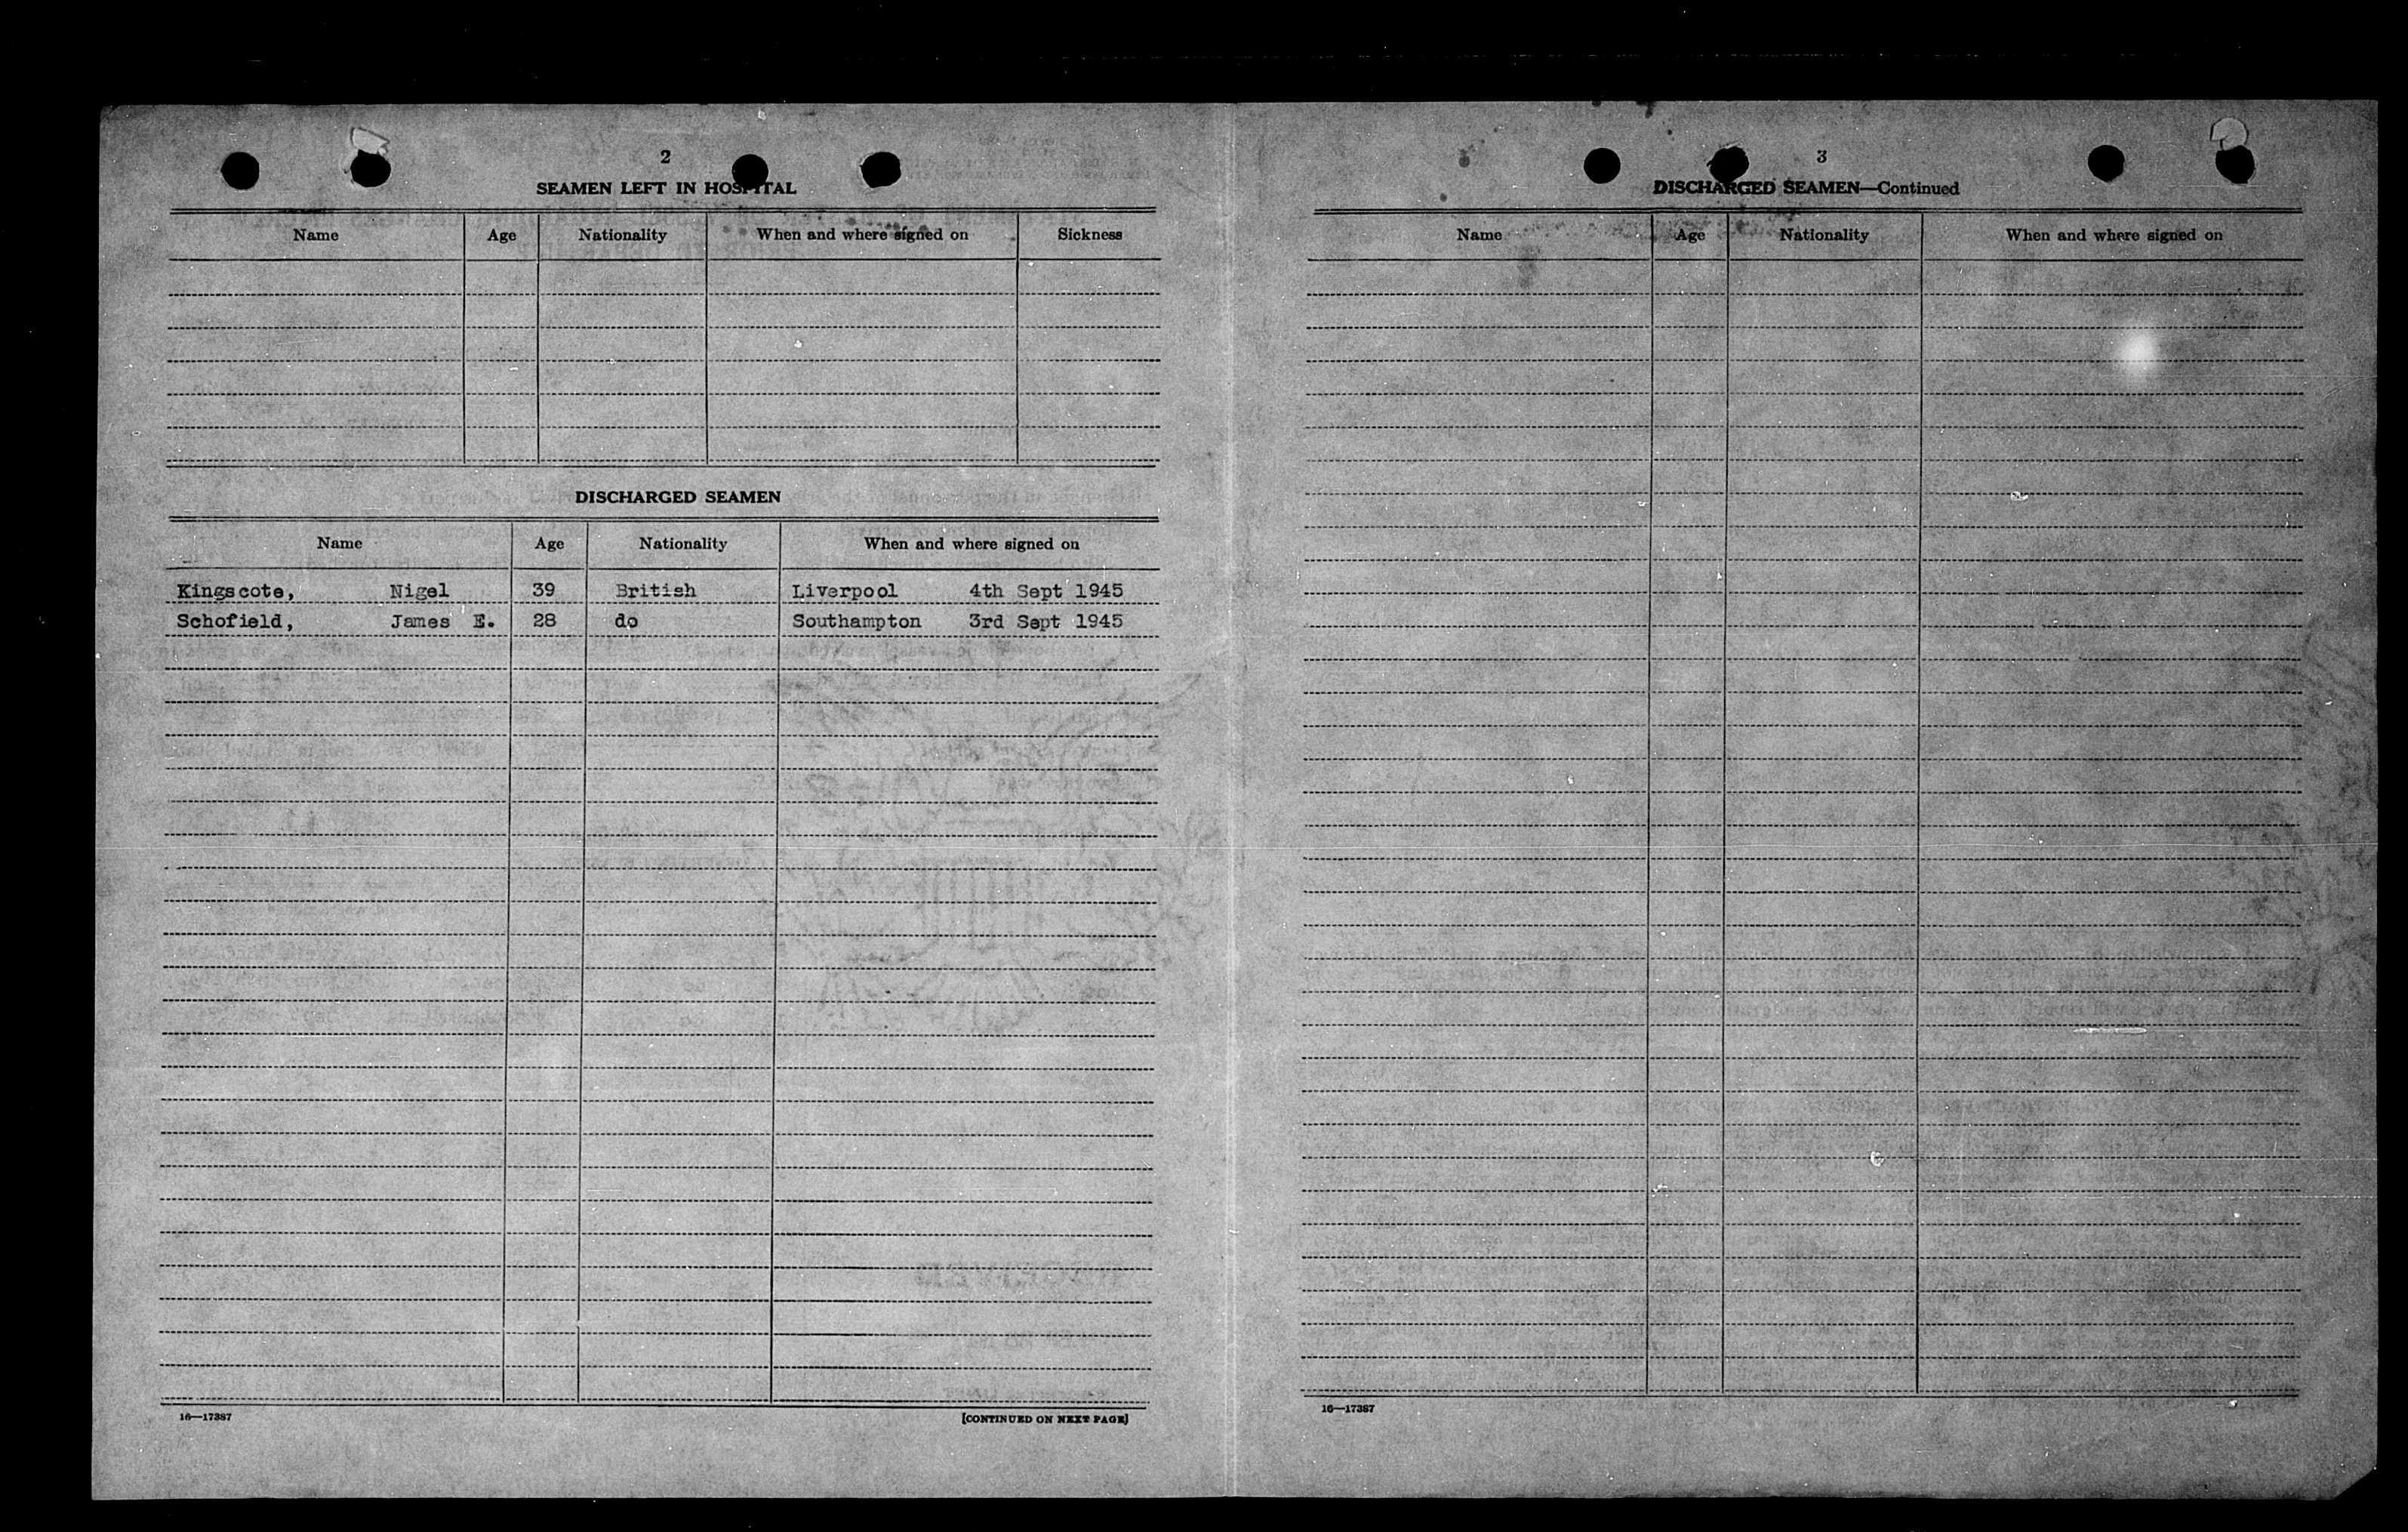 2
SEAMEN LEFT IN HOSPITAL
Name Age Nationality When and where signed on Sickness
DISCHARGED SEAMEN
Name Age Nationality When and where signed on
Kingscote, Nigel 39 British Liverpool 4th Sept 1945
Schofield, James E. 28 do Southampton 3rd Sept 1945
16—17387 [CONTINUED ON NEXT PAGE]
3
DISCHARGED SEAMEN—Continued
Name Age Nationality When and where signed on
16—17387